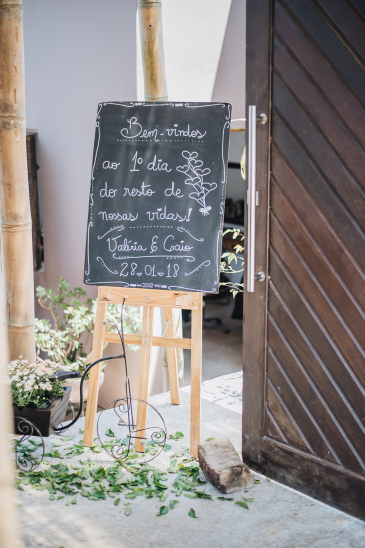 Bem-vindos
ao 1º dia
do resto de
nossas vidas!
Valíria & Caio
28.01.18